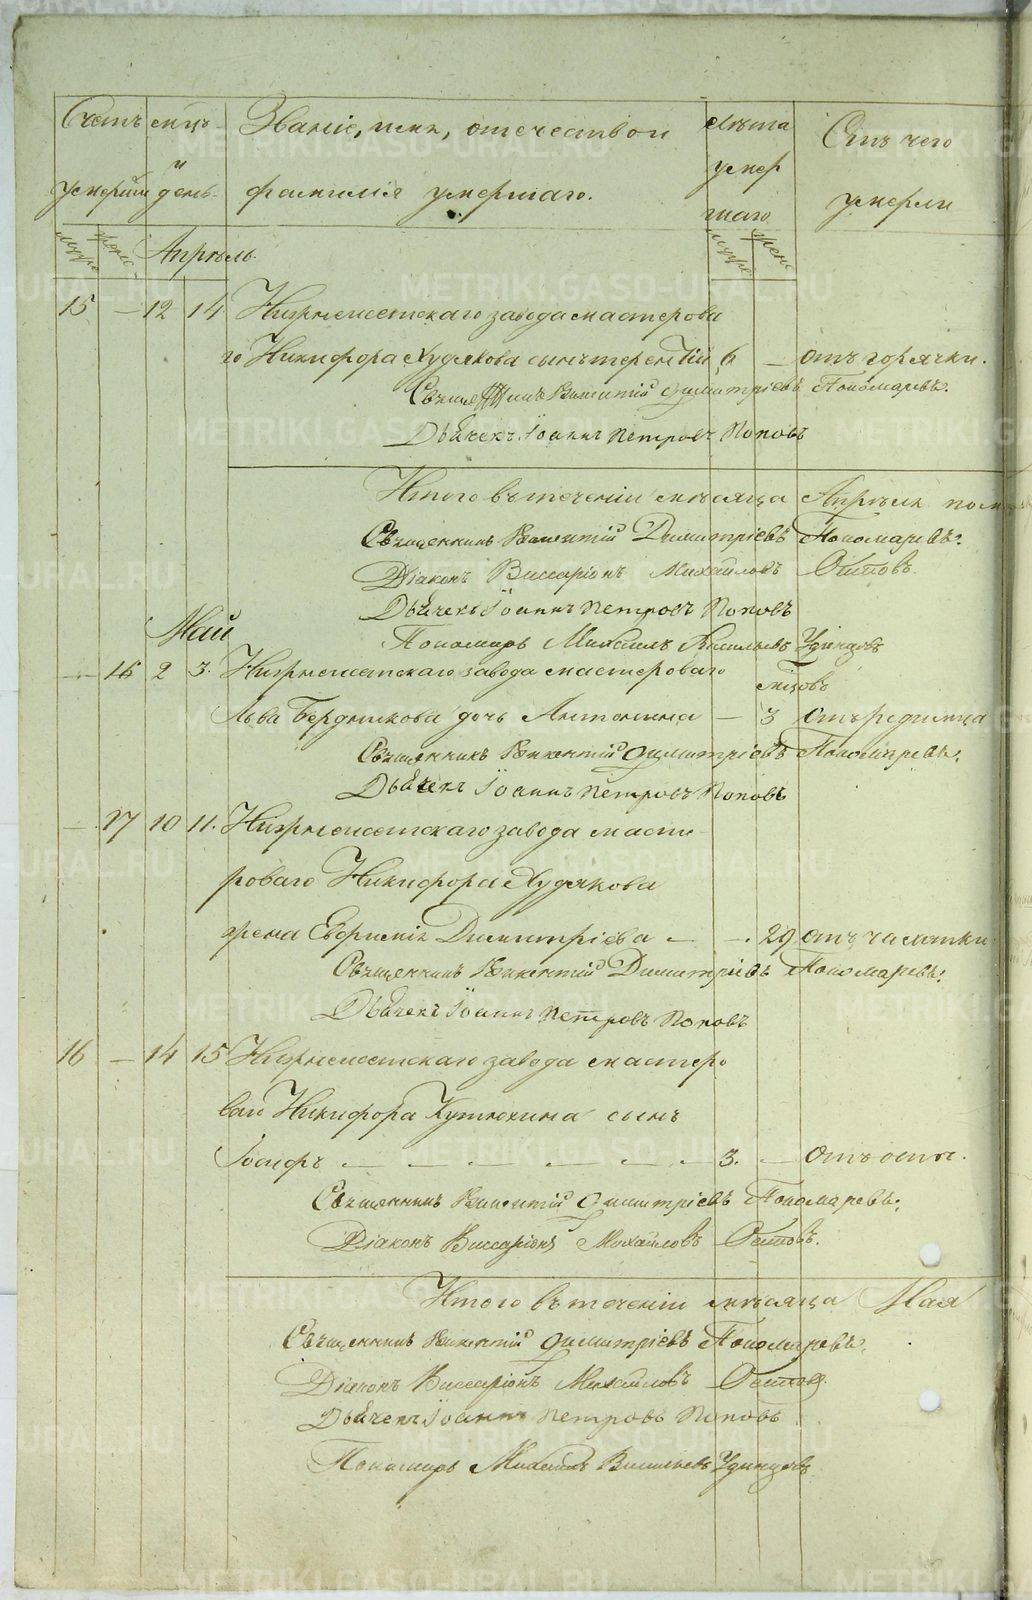 Счетъ мѣцъ Званіе, имя, отечество и лѣта Отъ чего
и
умершихъ день фамилія умершаго. умер умерли
шаго
муж. жен. Апрѣль муж. жен.
15 — 12 14 Нижнесетскаго завода мастерова
го Никифора Худякова сынъ Терентій 6 — отъ горячки.
Священникъ Викентій Димитріевъ Пономаревъ.
Дьячекъ Іоаннъ Петровъ Поповъ
Итого въ теченіи мѣсяца Апрѣля
Священникъ Викентій Димитріевъ Пономаревъ.
Діаконъ Виссаріонъ Михайловъ Осиповъ.
Дьячекъ Іоаннъ Петровъ Поповъ
Май Пономарь Михаилъ Васильевъ Удинцовъ
— 16 2 3. Нижнесетскаго завода мастероваго мѣсяцовъ
Льва Бердникова дочь Антонина — 3 отъ родимца
Священникъ Викентій Димитріевъ Пономаревъ.
Дьячекъ Іоаннъ Петровъ Поповъ
— 17 10 11. Нижнесетскаго завода масте
роваго Никифора Худякова
жена Евфимія Димитріева — — 29 отъ чахотки
Священникъ Викентій Димитріевъ Пономаревъ.
Дьячекъ Іоаннъ Петровъ Поповъ
16 — 14 15 Нижнесетскаго завода мастеро
ваго Никифора Кутюхина сынъ
Іосифъ — — — — — — 3. — Отъ оспы.
Священникъ Викентій Димитріевъ Пономаревъ.
Діаконъ Виссаріонъ Михайловъ Осиповъ.
Итого въ теченіи мѣсяца Мая
Священникъ Викентій Димитріевъ Пономаревъ.
Діаконъ Виссаріонъ Михайловъ Осиповъ
Дьячекъ Іоаннъ Петровъ Поповъ
Пономарь Михаилъ Васильевъ Удинцовъ
METRIKI.GASO-URAL.RU